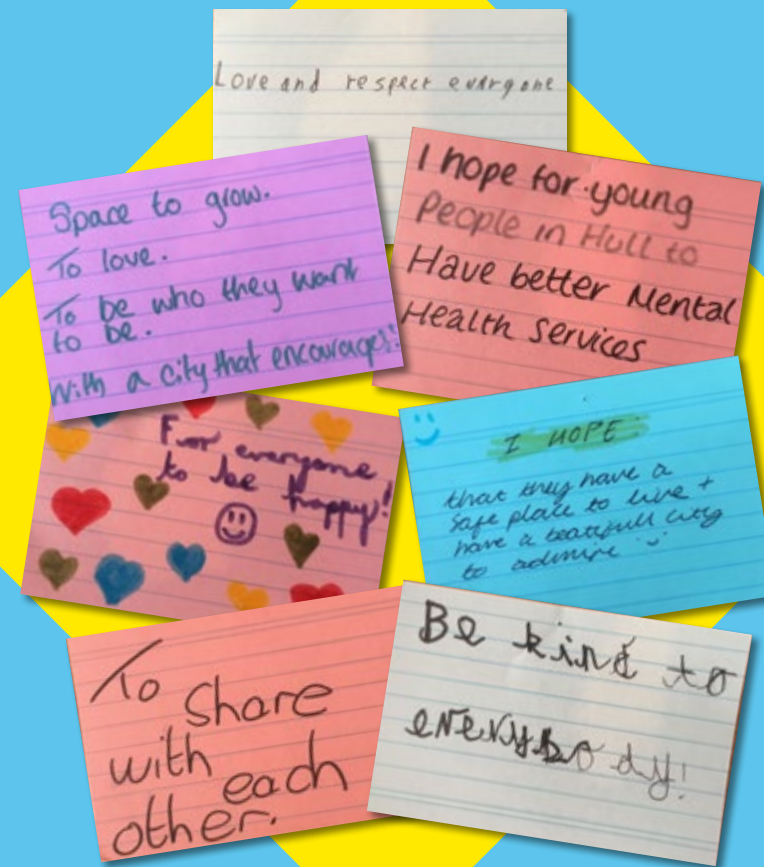 Love and respect evargone
Space to grow.
To love.
To be who they want
to be.
With a city that encourages!!
I hope for young
People in Hull to
Have better Mental
Health Services
For everyone
to be
happy!
I HOPE
that they have a
safe place to live +
have a beatifull city
to admire
To
share
with each
other.
Be kind to
everybody!